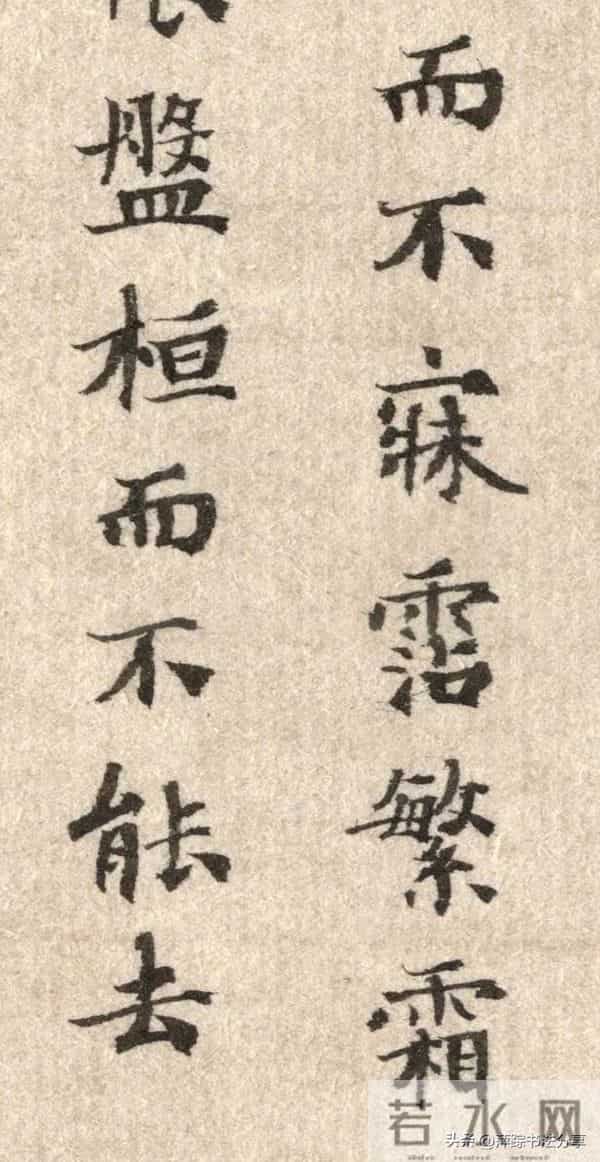 而不寐霑繁霜
盤桓而不能去
若水网
头条@萍踪书法分享